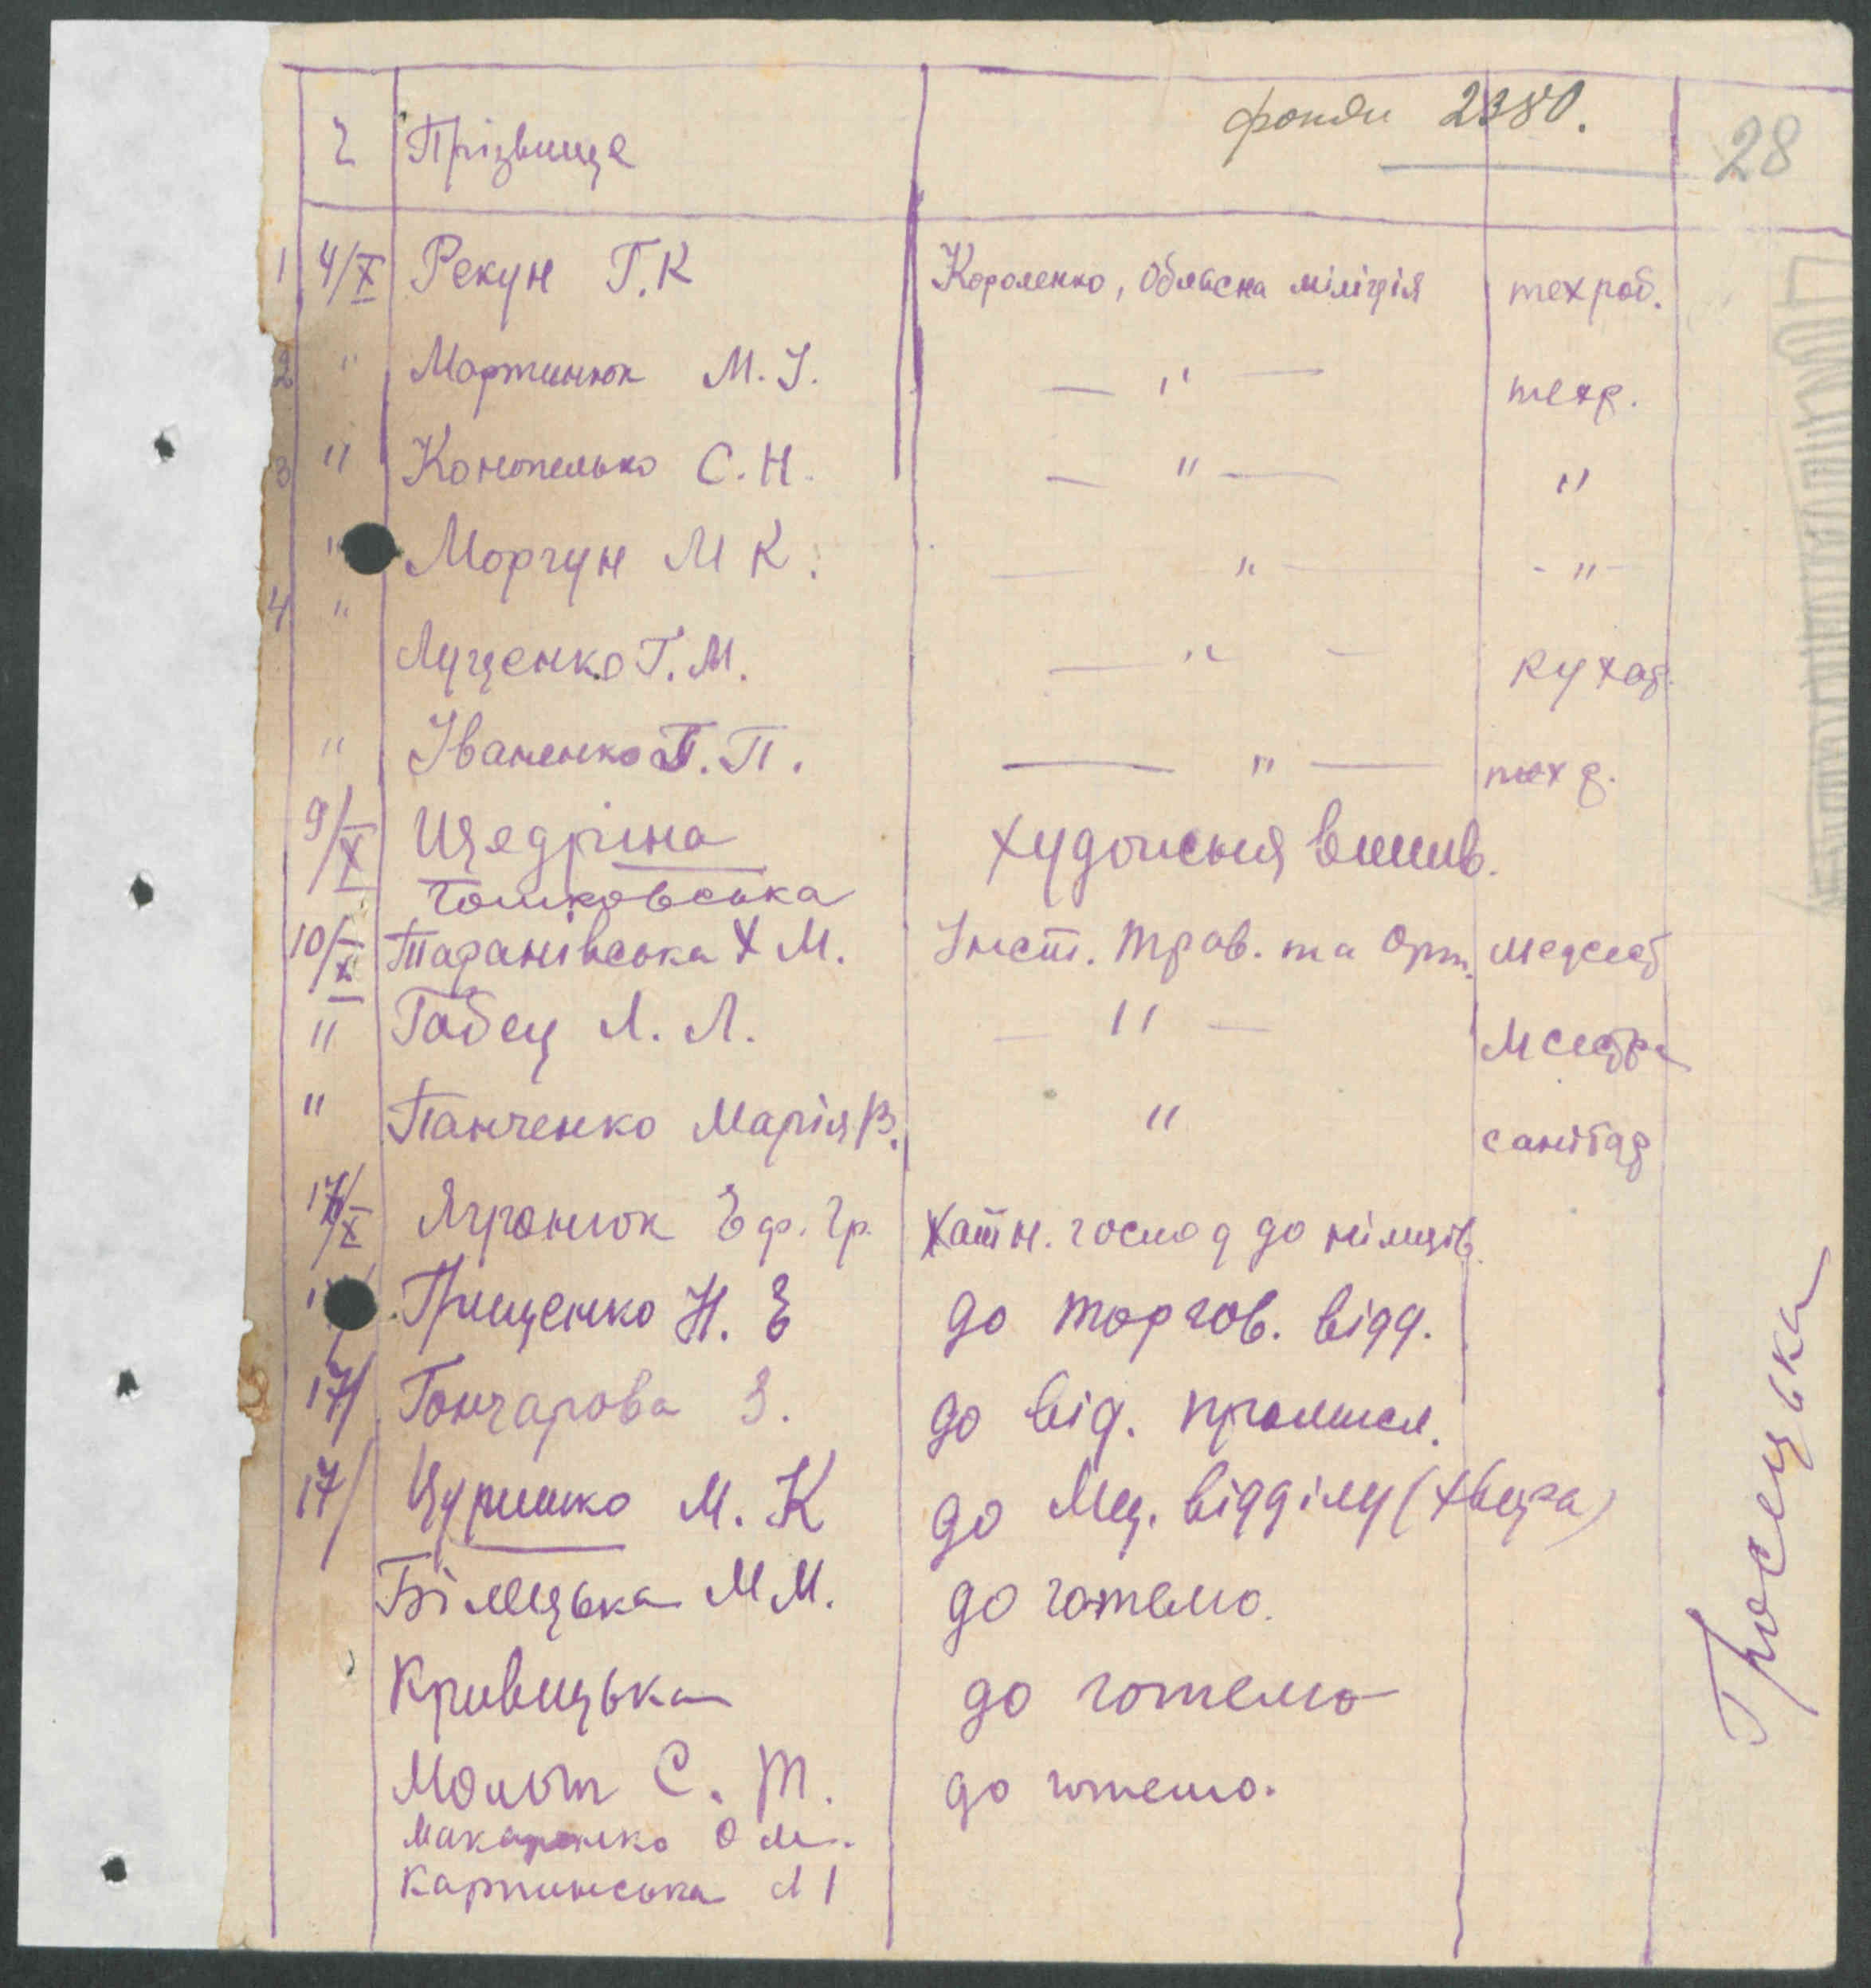 фонди 2380.
28
Ч Прізвище
1 4/X Рекун Г.К Короленко, Обласна міліція техроб.
2 " Мартинюк М.І. — " — техр.
3 " Конопелько С.Н. — " — "
" Моргун М К. — " — - " -
4 " Луценко Г.М. — " — кухар.
" Іваненко Г.П. — " — техр.
9/X Щедріна художня вишив.
Гошковська
10/X Таранівська Х М. Інст. трав. та Орт. медсест
" Габец Л. Л. — " — М сестра
" Панченко Марія В. " санітар
17/X Агронюк Еф. Гр. Хатн. господ до німців.
Грищенко Н. Е до торгов. відд.
17/ Гончарова З. до від. промисл.
17/ Цуришко М. К до Мед. відділу
Білецька М М. до готелю.
Кривицька до готелю
Мольт С. Т. до готелю.
Макаренко О М.
Карпинська
Гросицька